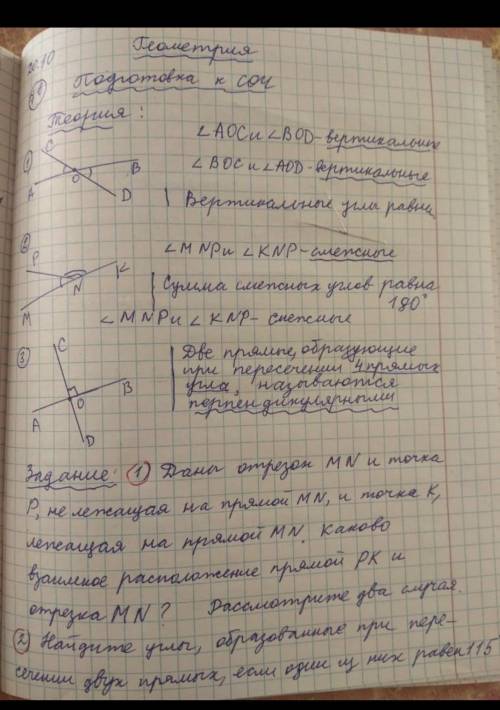 20.10
Геометрия
Подготовка к СОЧ
Теория:
∠AOC и ∠BOD - вертикальные
∠BOC и ∠AOD - вертикальные
Вертикальные углы равны
1
C
O
B
A
D
∠MNP и ∠KNP - смежные
2
P
K
N
M
Сумма смежных углов равна
180°
∠MNP и ∠KNP - смежные
3
C
O
B
A
D
Две прямые, образующие
при пересечении 4 прямых
угла, называются
перпендикулярными
Задание: 1) Даны отрезок MN и точка
P, не лежащая на прямой MN, и точка K,
лежащая на прямой MN. Каково
взаимное расположение прямой PK и
отрезка MN? Рассмотрите два случая.
2) Найдите углы, образованные при пере-
сечении двух прямых, если один из них равен 115